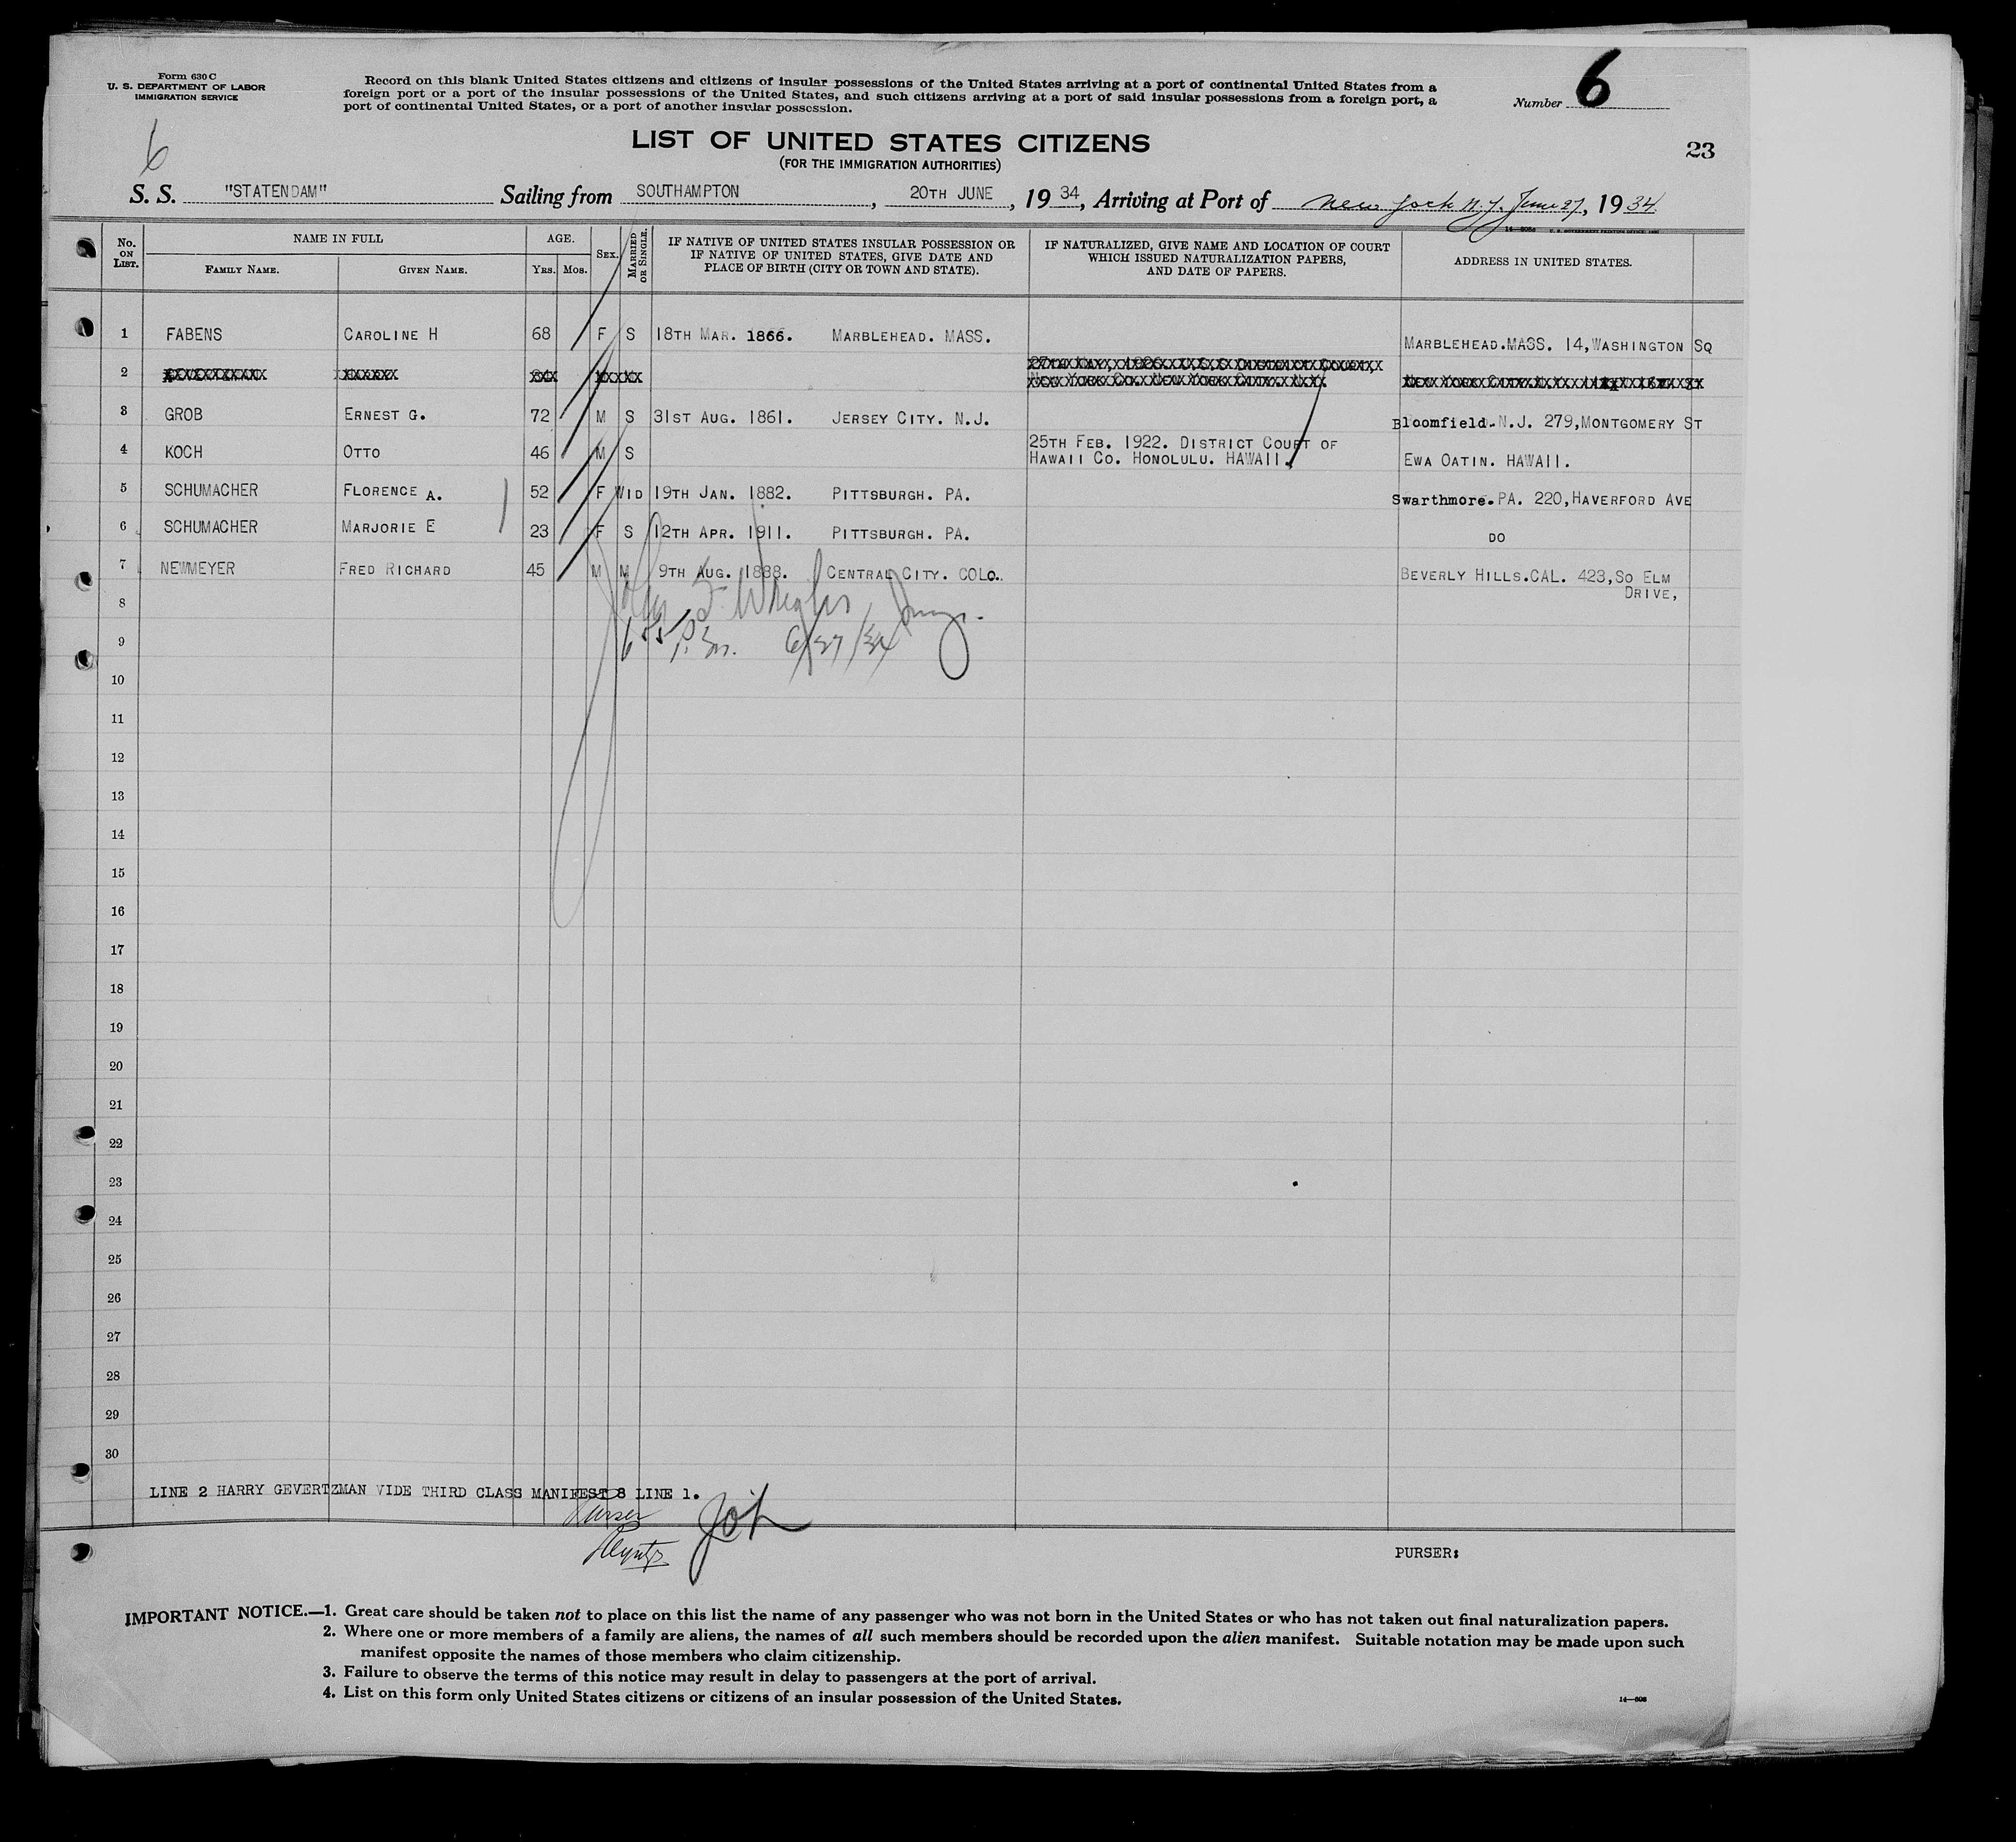 Form 630 C
U. S. DEPARTMENT OF LABOR
IMMIGRATION SERVICE
Record on this blank United States citizens and citizens of insular possessions of the United States arriving at a port of continental United States from a
foreign port or a port of the insular possessions of the United States, and such citizens arriving at a port of said insular possessions from a foreign port, a
port of continental United States, or a port of another insular possession.
Number 6
6
LIST OF UNITED STATES CITIZENS
(FOR THE IMMIGRATION AUTHORITIES)
23
S. S. "STATENDAM" Sailing from SOUTHAMPTON, 20TH JUNE, 1934, Arriving at Port of New York N.Y. June 27, 1934
No. ON LIST. NAME IN FULL FAMILY NAME. GIVEN NAME. AGE. YRS. MOS. SEX. MARRIED OR SINGLE. IF NATIVE OF UNITED STATES INSULAR POSSESSION OR IF NATIVE OF UNITED STATES, GIVE DATE AND PLACE OF BIRTH (CITY OR TOWN AND STATE). IF NATURALIZED, GIVE NAME AND LOCATION OF COURT WHICH ISSUED NATURALIZATION PAPERS, AND DATE OF PAPERS. ADDRESS IN UNITED STATES.
1 FABENS CAROLINE H 68 F S 18TH MAR. 1866. MARBLEHEAD. MASS. MARBLEHEAD.MASS. 14,WASHINGTON SQ
2
3 GROB ERNEST G. 72 M S 31ST AUG. 1861. JERSEY CITY. N.J. Bloomfield.N.J. 279,MONTGOMERY ST
4 KOCH OTTO 46 M S 25TH FEB. 1922. DISTRICT COURT OF HAWAII CO. HONOLULU. HAWAII. EWA OATIN. HAWAII.
5 SCHUMACHER FLORENCE A. 52 F WID 19TH JAN. 1882. PITTSBURGH. PA. Swarthmore.PA. 220,HAVERFORD AVE
6 SCHUMACHER MARJORIE E 23 F S 12TH APR. 1911. PITTSBURGH. PA. DO
7 NEWMEYER FRED RICHARD 45 M M 9TH AUG. 1888. CENTRAL CITY. COLO. BEVERLY HILLS.CAL. 423,SO ELM DRIVE,
8
9 P.M. 6/27/34
10
11
12
13
14
15
16
17
18
19
20
21
22
23
24
25
26
27
28
29
30
LINE 2 HARRY GEVERTZMAN VIDE THIRD CLASS MANIFEST 8 LINE 1.
Purser
PURSER:
IMPORTANT NOTICE.—1. Great care should be taken not to place on this list the name of any passenger who was not born in the United States or who has not taken out final naturalization papers.
2. Where one or more members of a family are aliens, the names of all such members should be recorded upon the alien manifest. Suitable notation may be made upon such
manifest opposite the names of those members who claim citizenship.
3. Failure to observe the terms of this notice may result in delay to passengers at the port of arrival.
4. List on this form only United States citizens or citizens of an insular possession of the United States.